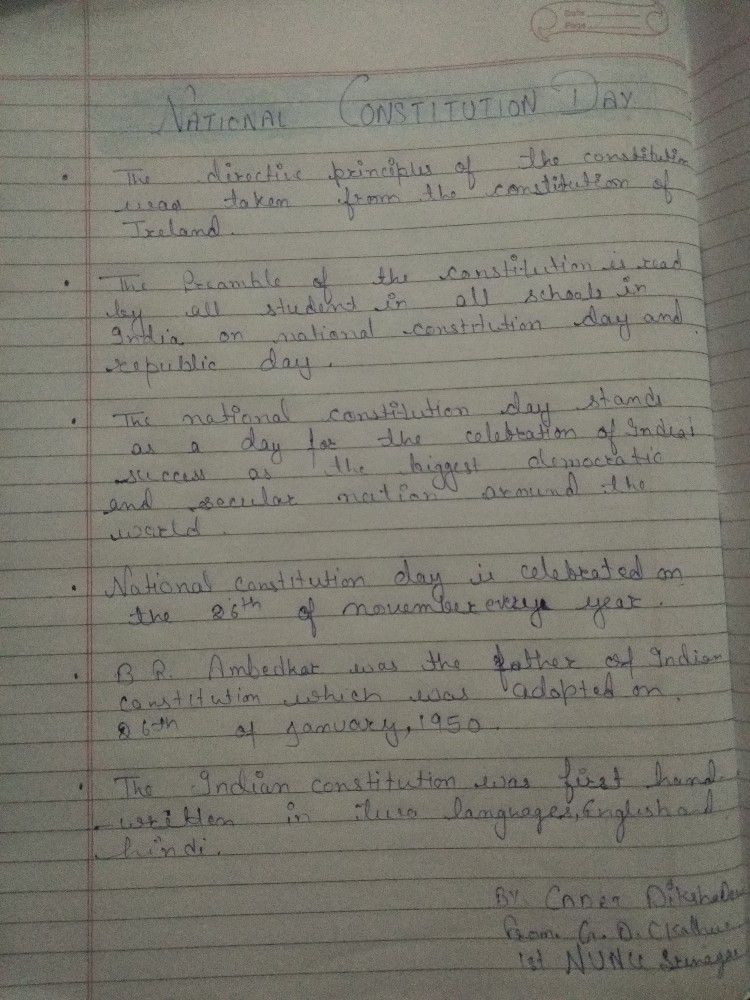 Date
Page
NATIONAL CONSTITUTION DAY
• The directive principles of the constitution
was taken from the constitution of
Ireland.
• The Preamble of the constitution is read
by all student in all schools in
India on national constitution day and
republic day.
• The national constitution day stands
as a day for the celebration of India's
success as the biggest democratic
and secular nation around the
world.
• National constitution day is celebrated on
the 26th of november every year.
• B R. Ambedkar was the father of Indian
constitution which was adopted on
26th of january, 1950.
• The Indian constitution was first hand-
written in two languages, English and
hindi.
BY. CADET
From. G. D. C
1st Srinagar